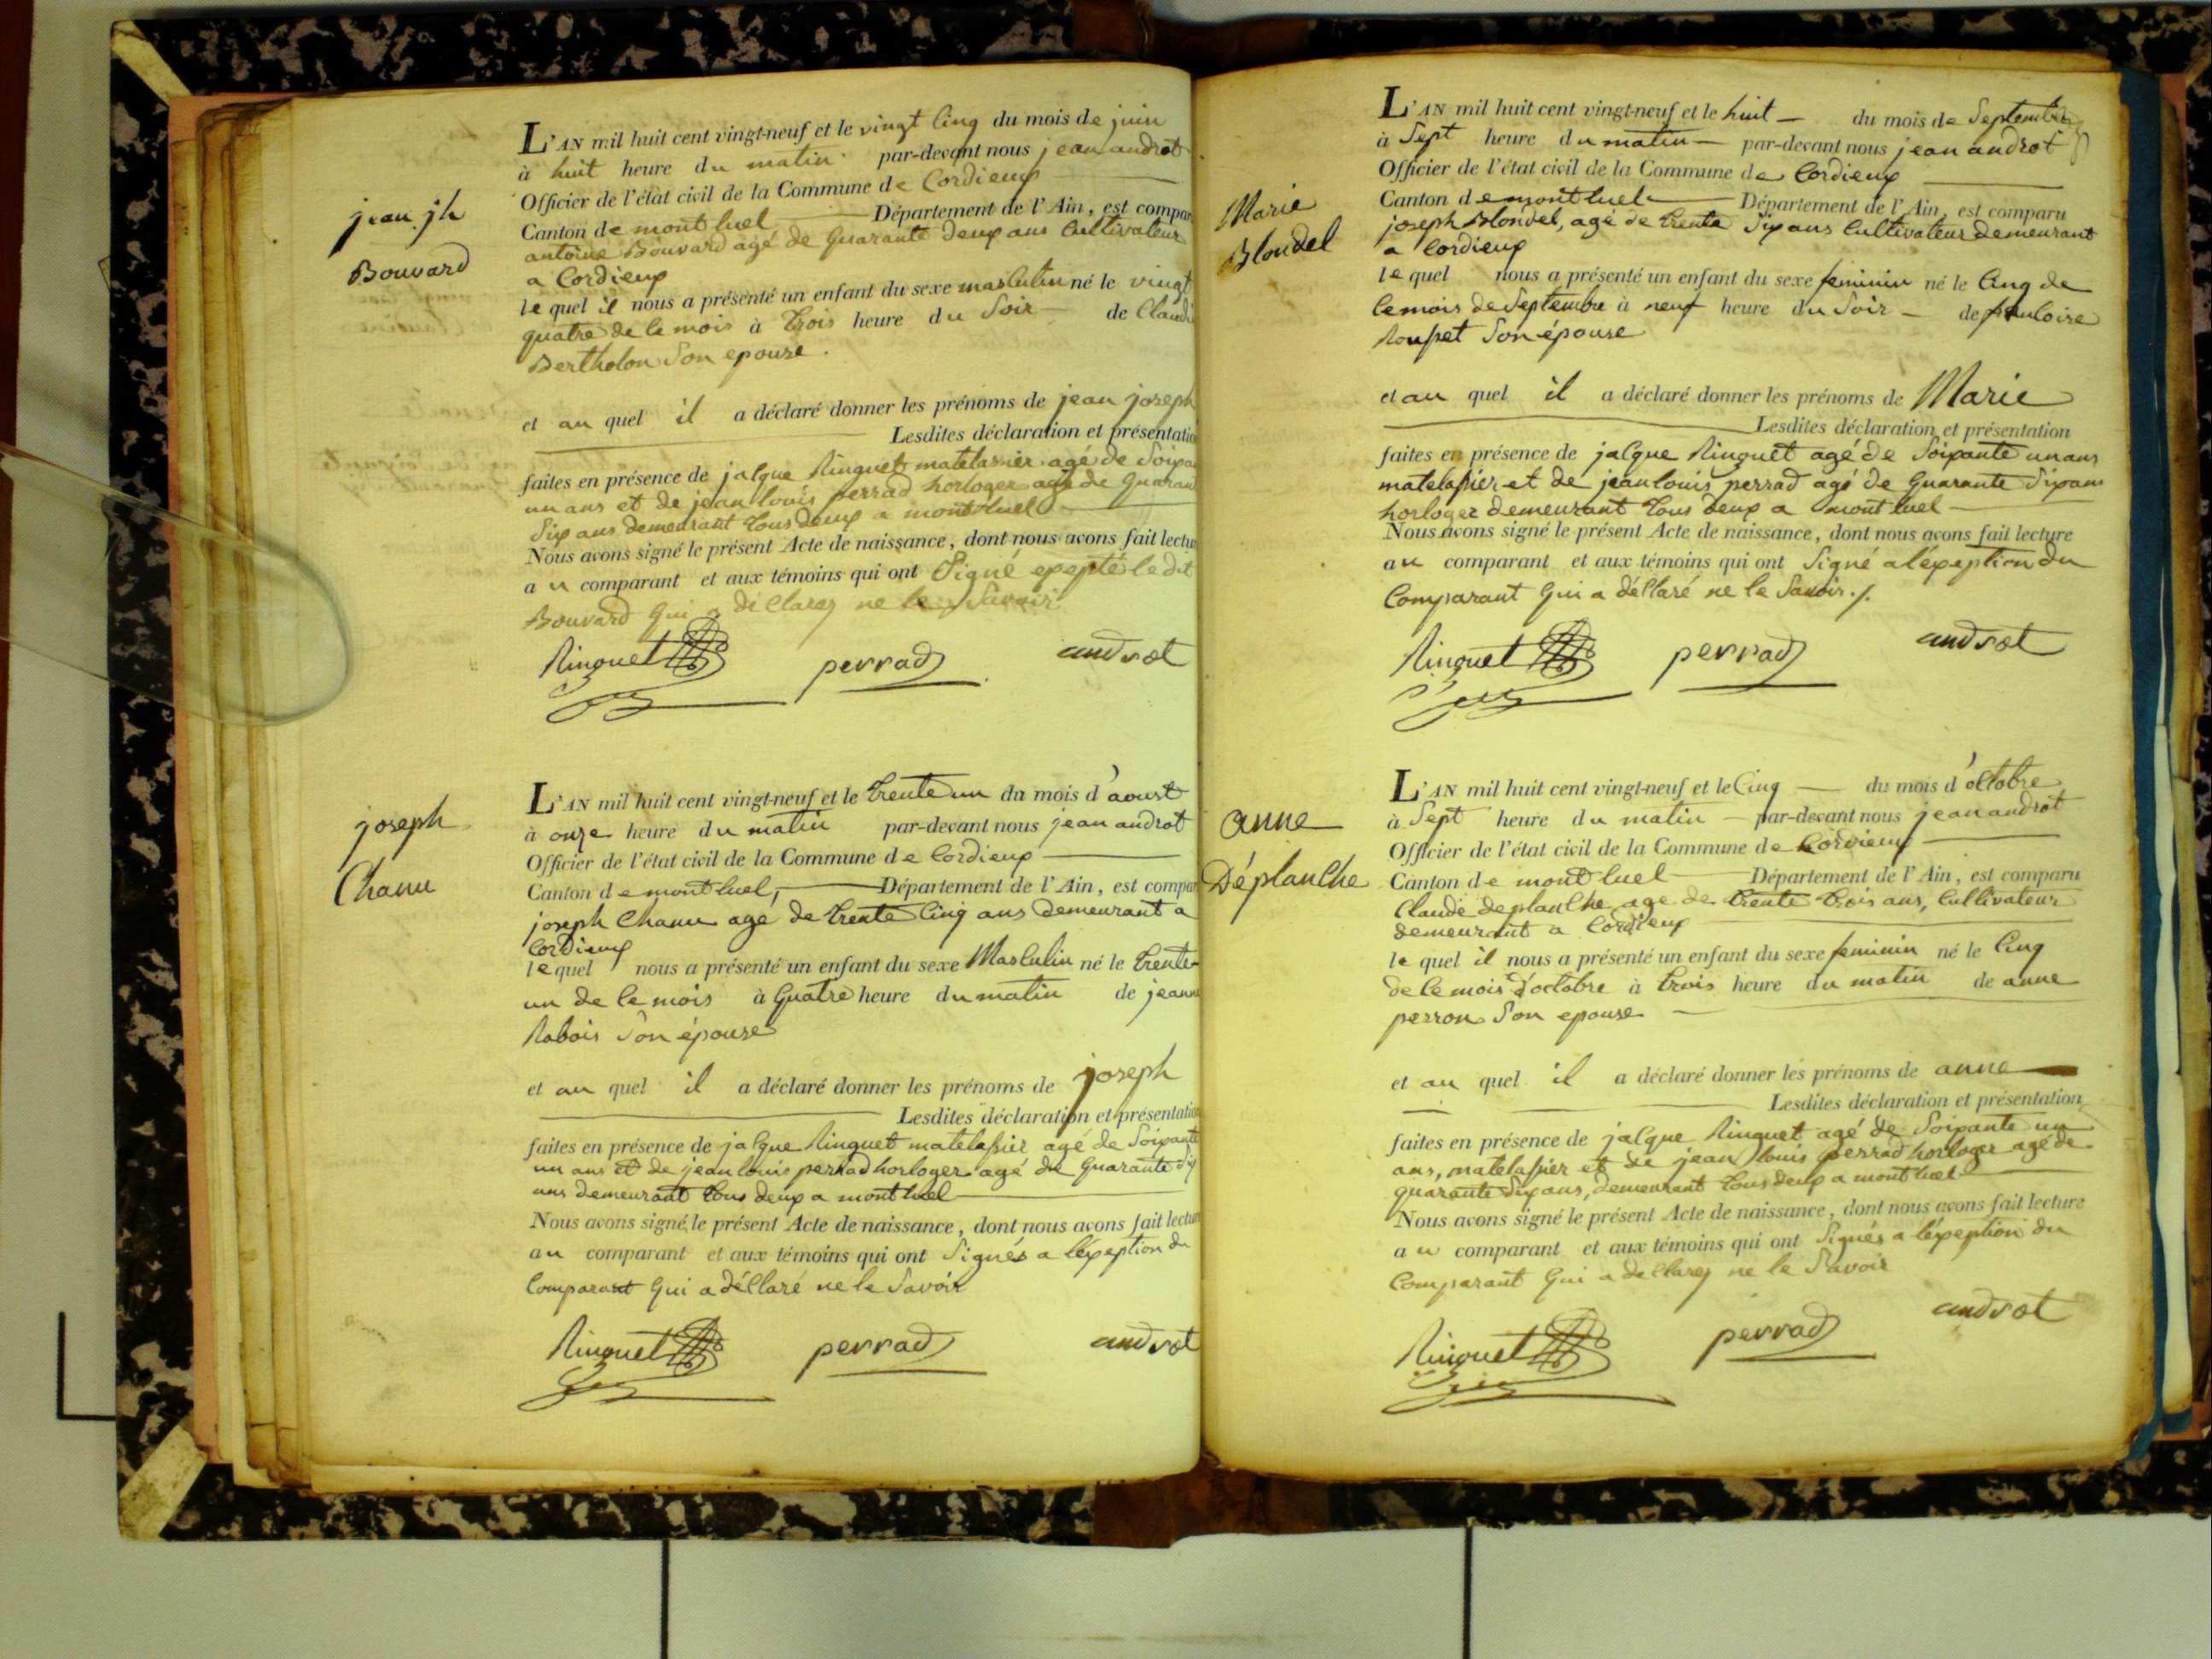 jean jh
Bouvard
L'AN mil huit cent vingt-neuf et le vingt Cinq du mois de juin
à huit heure du matin par-devant nous jean androt
Officier de l'état civil de la Commune de Cordieux
Canton de mont luel Département de l'Ain, est compar
antoine Bouvard agé de Quarante deux ans Cultivateur
a Cordieux
le quel il nous a présenté un enfant du sexe masculin né le vingt
quatre de ce mois à trois heure du Soir de Claudi
Bertholon Son epouse.
et au quel il a déclaré donner les prénoms de jean joseph
Lesdites déclaration et présentatio
faites en présence de jacque Ringuet matelassier agé de Soixan
un ans et de jean louis perrad horloger agé de Quaran
Six ans demeurant tous deux a mont luel
Nous avons signé le présent Acte de naissance, dont nous avons fait lectu
au comparant et aux témoins qui ont Signé exepté le dit
Bouvard Qui a déClarez ne le Savoir
Ringuet perrad androt
joseph
Chanu
L'AN mil huit cent vingt-neuf et le trente un du mois d'aoust
à onze heure du matin par-devant nous jean androt
Officier de l'état civil de la Commune de Cordieux
Canton de mont luel, Département de l'Ain, est compar
joseph Chanu agé de trente Cinq ans demeurant a
Cordieux
le quel nous a présenté un enfant du sexe Masculin né le trente
un de ce mois à Quatre heure du matin de jeanne
Rabois Son épouse
et au quel il a déclaré donner les prénoms de joseph
Lesdites déclaration et présentatio
faites en présence de jacque Ringuet matelassier agé de Soixante
un ans et de jean louis perrad horloger agé de Quarante Six
ans demeurant tous deux a mont luel
Nous avons signé le présent Acte de naissance, dont nous avons fait lectur
au comparant et aux témoins qui ont Signés a léxeption du
Comparant Qui a déClaré ne le Savoir
Ringuet perrad androt
Marie
Blondel
L'AN mil huit cent vingt-neuf et le huit du mois de Septembre
à Sept heure du matin par-devant nous jean androt
Officier de l'état civil de la Commune de Cordieux
Canton de mont luel Département de l'Ain, est comparu
joseph Blondel, agé de trente Six ans Cultivateur demeurant
a Cordieux
le quel nous a présenté un enfant du sexe feminin né le Cinq de
ce mois de Septembre à neuf heure du Soir de
Rousset Son épouse
et au quel il a déclaré donner les prénoms de Marie
Lesdites déclaration et présentation
faites en présence de jacque Ringuet agé de Soixante un ans
matelassier et de jean louis perrad agé de Quarante Six ans
horloger demeurant tous deux a mont luel
Nous avons signé le présent Acte de naissance, dont nous avons fait lecture
au comparant et aux témoins qui ont Signé a léxeption du
Comparant Qui a déClaré ne le Savoir./.
Ringuet perrad androt
anne
Déplanche
L'AN mil huit cent vingt-neuf et le Cinq du mois d'octobre
à Sept heure du matin par-devant nous jean androt
Officier de l'état civil de la Commune de Cordieux
Canton de mont luel Département de l'Ain, est comparu
Claude deplanche age de trente trois ans, Cultivateur
demeurant a Cordieux
le quel il nous a présenté un enfant du sexe feminin né le Cinq
de ce mois d'octobre à trois heure du matin de anne
perron Son epouse
et au quel il a déclaré donner les prénoms de anne
Lesdites déclaration et présentation
faites en présence de jacque Ringuet agé de Soixante un
ans, matelassier et de jean louis perrad horloger agé de
quarante Six ans, demeurant tous deux a mont luel
Nous avons signé le présent Acte de naissance, dont nous avons fait lecture
au comparant et aux témoins qui ont Signés a léxeption du
Comparant Qui a deClarez ne le Savoir
Ringuet perrad androt